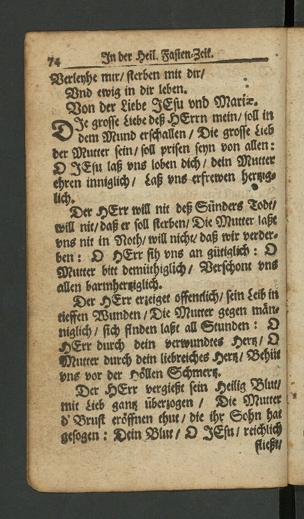 74 In der Heil. Fasten-Zeit.
Verleyhe mir/ sterben mit dir/
Vnd ewig in dir leben.
Von der Liebe JEsu vnd Mariæ.
DJe grosse Liebe deß HErrn mein/ soll in
dem Mund erschallen/ Die grosse Lieb
der Mutter sein/ soll prisen seyn von allen:
O JEsu laß vns loben dich/ dein Mutter
ehren inniglich/ Laß vns erfrewen hertzig-
lich.
Der HErr will nit deß Sünders Todt/
will nit/ daß er soll sterben/ Die Mutter laßt
vns nit in Noth/ will nicht/ daß wir verder-
ben: O HErr sih vns an gütiglich: O
Mutter bitt demüthiglich/ Verschone vns
allen barmhertziglich.
Der HErr erzeiget offentlich/ sein Leib in
tieffen Wunden/ Die Mutter gegen män-
niglich/ sich finden laßt all Stunden: O
HErr durch dein verwundtes Hertz/ O
Mutter durch dein liebreiches Hertz/ Behüt
vns vor der Höllen Schmertz.
Der HErr vergießt sein Heilig Blut/
mit Lieb gantz überzogen/ Die Mutter
d' Brust eröffnen thut/ die ihr Sohn hat
gesogen: Dein Blut/ O JEsu/ reichlich
fließt/